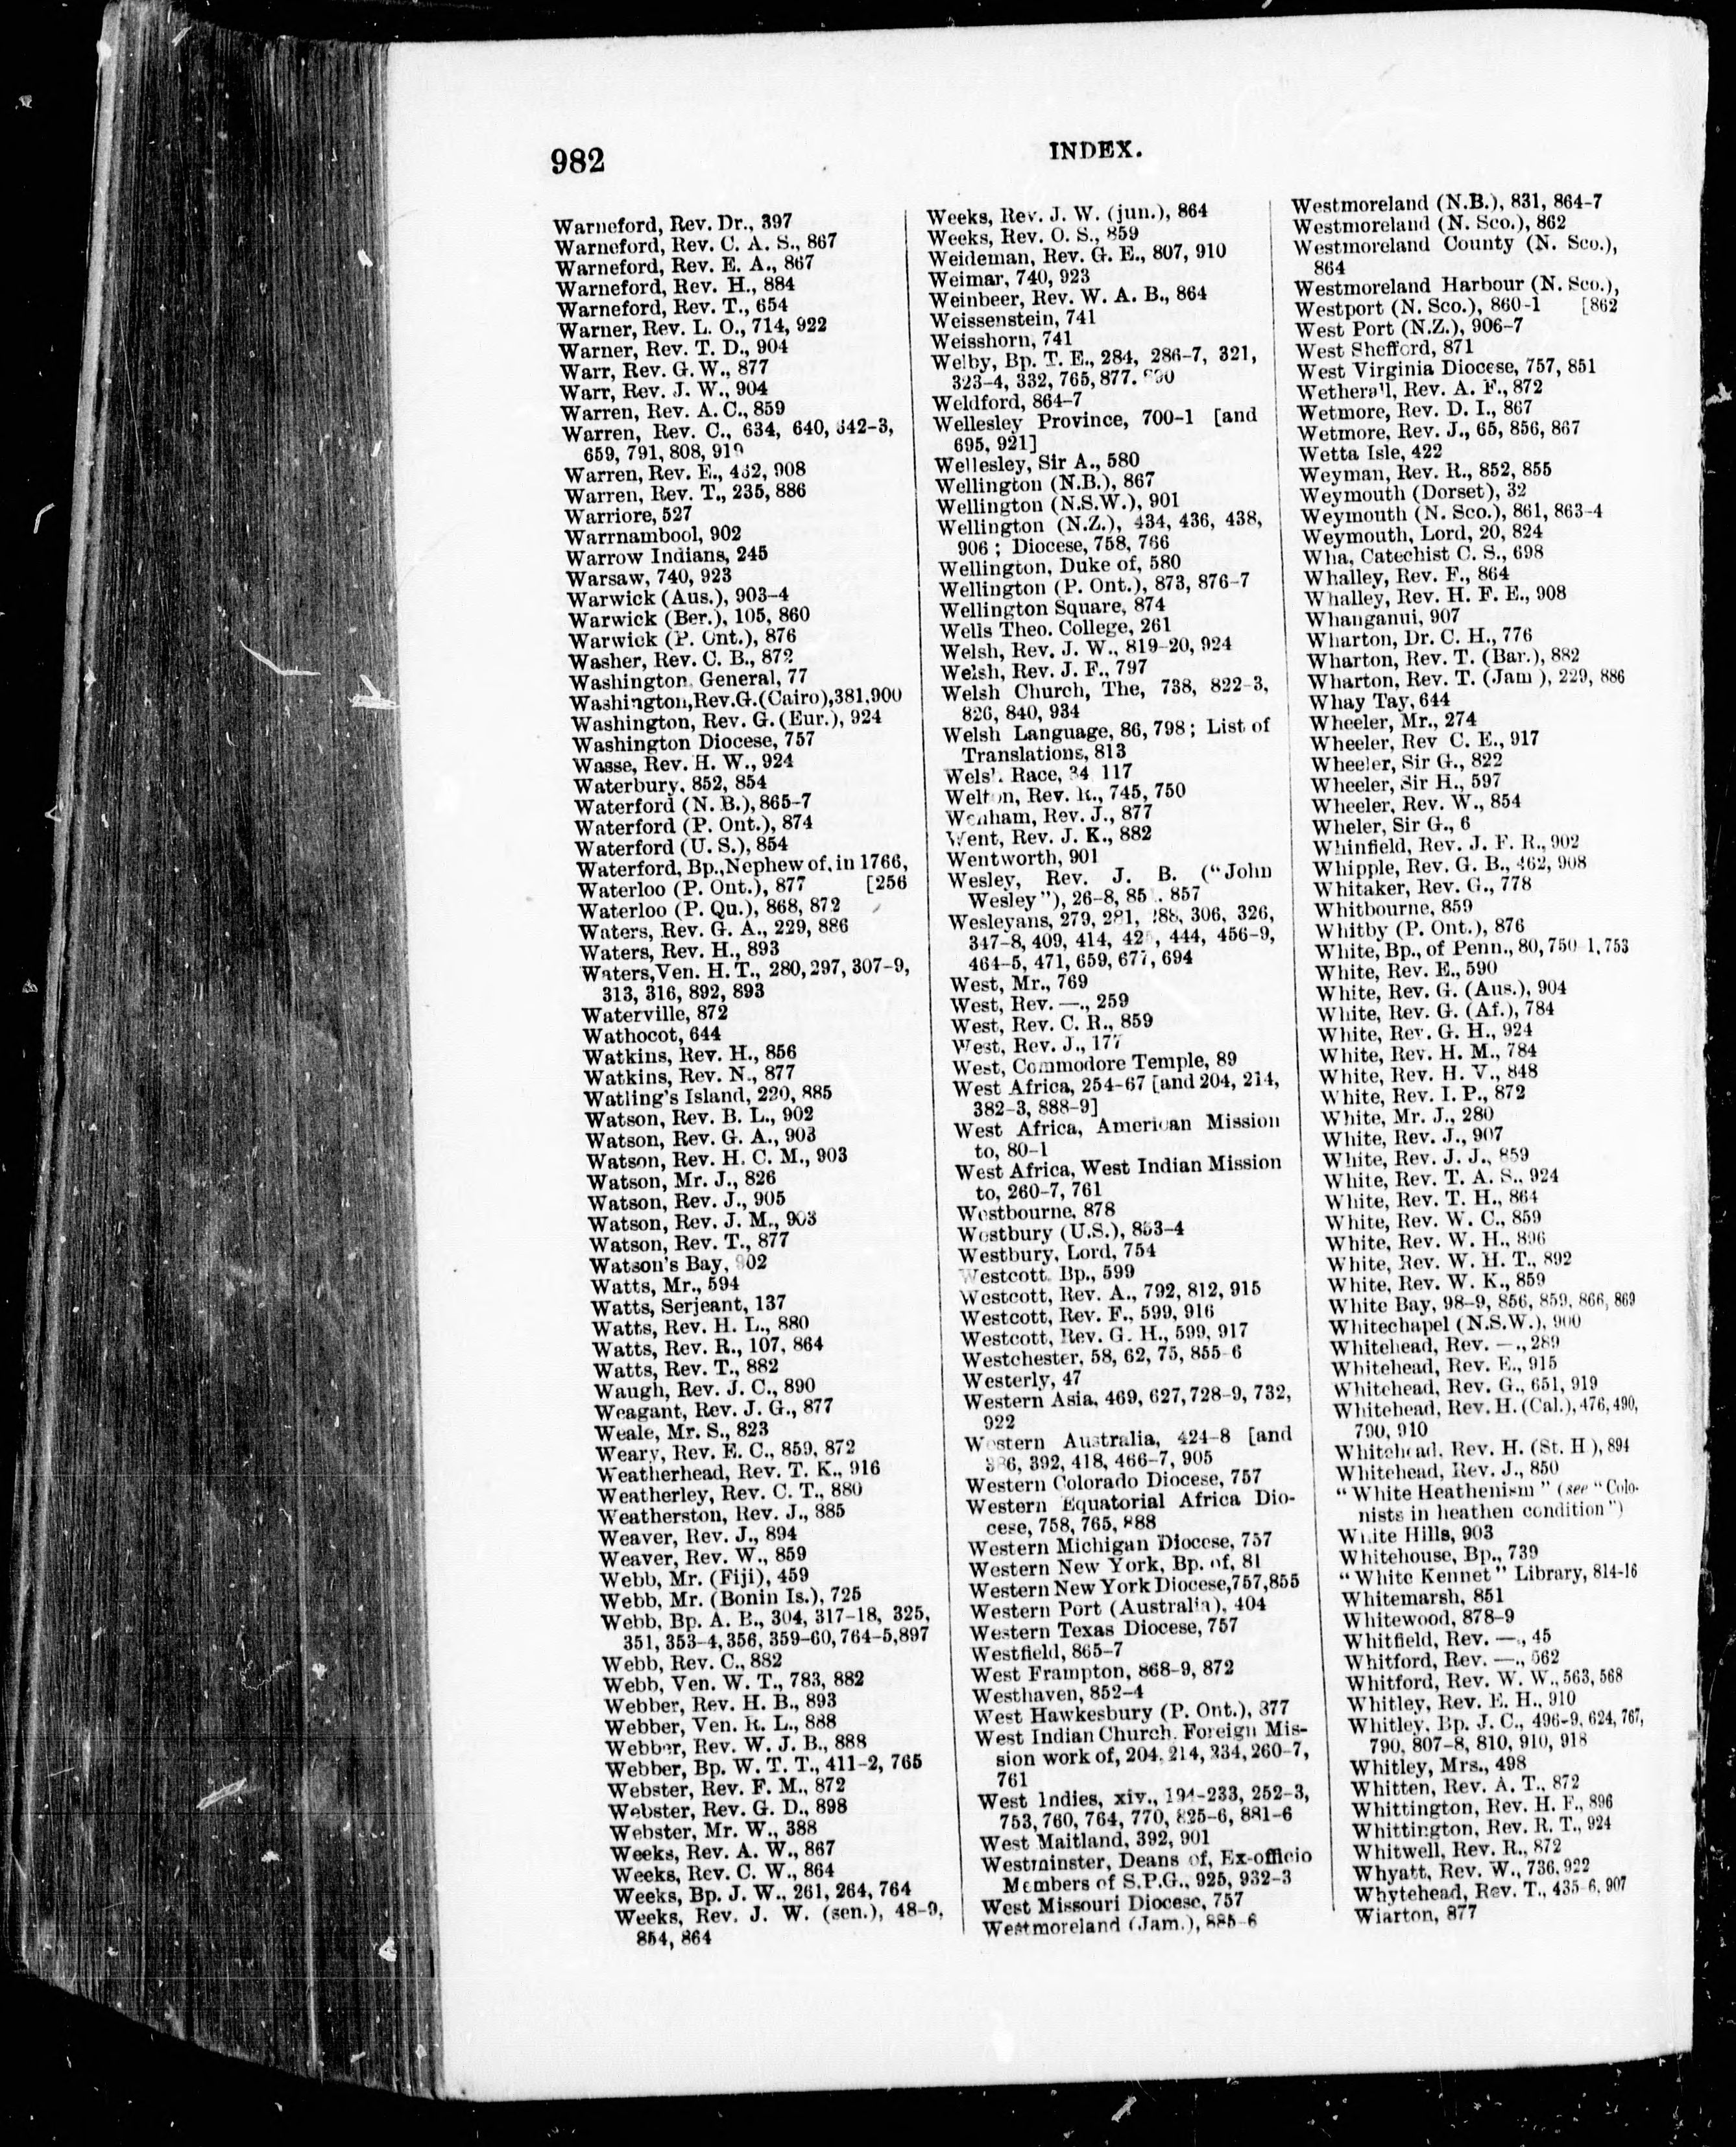 982
INDEX.
Warneford, Rev. Dr., 397
Warneford, Rev. C. A. S., 867
Warneford, Rev. E. A., 867
Warneford, Rev. H., 884
Warneford, Rev. T., 654
Warner, Rev. L. O., 714, 922
Warner, Rev. T. D., 904
Warr, Rev. G. W., 877
Warr, Rev. J. W., 904
Warren, Rev. A. C., 859
Warren, Rev. C., 634, 640, 642-3,
659, 791, 808, 919
Warren, Rev. E., 462, 908
Warren, Rev. T., 235, 886
Warriore, 527
Warrnambool, 902
Warrow Indians, 245
Warsaw, 740, 923
Warwick (Aus.), 903-4
Warwick (Ber.), 105, 860
Warwick (P. Ont.), 876
Washer, Rev. C. B., 872
Washington, General, 77
Washington, Rev. G. (Cairo), 381, 900
Washington, Rev. G. (Eur.), 924
Washington Diocese, 757
Wasse, Rev. H. W., 924
Waterbury, 852, 854
Waterford (N. B.), 865-7
Waterford (P. Ont.), 874
Waterford (U. S.), 854
Waterford, Bp., Nephew of, in 1766,
Waterloo (P. Ont.), 877 [256
Waterloo (P. Qu.), 868, 872
Waters, Rev. G. A., 229, 886
Waters, Rev. H., 893
Waters, Ven. H. T., 280, 297, 307-9,
313, 316, 892, 893
Waterville, 872
Wathocot, 644
Watkins, Rev. H., 856
Watkins, Rev. N., 877
Watling's Island, 220, 885
Watson, Rev. B. L., 902
Watson, Rev. G. A., 903
Watson, Rev. H. C. M., 903
Watson, Mr. J., 826
Watson, Rev. J., 905
Watson, Rev. J. M., 903
Watson, Rev. T., 877
Watson's Bay, 902
Watts, Mr., 594
Watts, Serjeant, 137
Watts, Rev. H. L., 880
Watts, Rev. R., 107, 864
Watts, Rev. T., 882
Waugh, Rev. J. C., 890
Weagant, Rev. J. G., 877
Weale, Mr. S., 823
Weary, Rev. E. C., 859, 872
Weatherhead, Rev. T. K., 916
Weatherley, Rev. C. T., 880
Weatherston, Rev. J., 885
Weaver, Rev. J., 894
Weaver, Rev. W., 859
Webb, Mr. (Fiji), 459
Webb, Mr. (Bonin Is.), 725
Webb, Bp. A. B., 304, 317-18, 325,
351, 353-4, 356, 359-60, 764-5, 897
Webb, Rev. C., 882
Webb, Ven. W. T., 783, 882
Webber, Rev. H. B., 893
Webber, Ven. R. L., 888
Webber, Rev. W. J. B., 888
Webber, Bp. W. T. T., 411-2, 765
Webster, Rev. F. M., 872
Webster, Rev. G. D., 898
Webster, Mr. W., 388
Weeks, Rev. A. W., 867
Weeks, Rev. C. W., 864
Weeks, Bp. J. W., 261, 264, 764
Weeks, Rev. J. W. (sen.), 48-9,
854, 864
Weeks, Rev. J. W. (jun.), 864
Weeks, Rev. O. S., 859
Weideman, Rev. G. E., 807, 910
Weimar, 740, 923
Weinbeer, Rev. W. A. B., 864
Weissenstein, 741
Weisshorn, 741
Welby, Bp. T. E., 284, 286-7, 321,
323-4, 332, 765, 877.
Weldford, 864-7
Wellesley Province, 700-1 [and
695, 921]
Wellesley, Sir A., 580
Wellington (N.B.), 867
Wellington (N.S.W.), 901
Wellington (N.Z.), 434, 436, 438,
906 ; Diocese, 758, 766
Wellington, Duke of, 580
Wellington (P. Ont.), 873, 876-7
Wellington Square, 874
Wells Theo. College, 261
Welsh, Rev. J. W., 819-20, 924
Welsh, Rev. J. F., 797
Welsh Church, The, 738, 822-3,
826, 840, 934
Welsh Language, 86, 798 ; List of
Translations, 813
Welsh Race, 34, 117
Welton, Rev. R., 745, 750
Wenham, Rev. J., 877
Went, Rev. J. K., 882
Wentworth, 901
Wesley, Rev. J. B. ("John
Wesley"), 26-8, 857
Wesleyans, 279, 281, 288, 306, 326,
347-8, 409, 414, 444, 456-9,
464-5, 471, 659, 677, 694
West, Mr., 769
West, Rev. —., 259
West, Rev. C. R., 859
West, Rev. J., 177
West, Commodore Temple, 89
West Africa, 254-67 [and 204, 214,
382-3, 888-9]
West Africa, American Mission
to, 80-1
West Africa, West Indian Mission
to, 260-7, 761
Westbourne, 878
Westbury (U.S.), 853-4
Westbury, Lord, 754
Westcott, Bp., 599
Westcott, Rev. A., 792, 812, 915
Westcott, Rev. F., 599, 916
Westcott, Rev. G. H., 599, 917
Westchester, 58, 62, 75, 855-6
Westerly, 47
Western Asia, 469, 627, 728-9, 732,
922
Western Australia, 424-8 [and
386, 392, 418, 466-7, 905
Western Colorado Diocese, 757
Western Equatorial Africa Dio-
cese, 758, 765, 888
Western Michigan Diocese, 757
Western New York, Bp. of, 81
Western New York Diocese, 757, 855
Western Port (Australia), 404
Western Texas Diocese, 757
Westfield, 865-7
West Frampton, 868-9, 872
Westhaven, 852-4
West Hawkesbury (P. Ont.), 877
West Indian Church, Foreign Mis-
sion work of, 204, 214, 234, 260-7,
761
West Indies, xiv., 194-233, 252-3,
753, 760, 764, 770, 825-6, 881-6
West Maitland, 392, 901
Westminster, Deans of, Ex-officio
Members of S.P.G., 925, 932-3
West Missouri Diocese, 757
Westmoreland (Jam.), 885-6
Westmoreland (N.B.), 831, 864-7
Westmoreland (N. Sco.), 862
Westmoreland County (N. Sco.),
864
Westmoreland Harbour (N. Sco.),
Westport (N. Sco.), 860-1 [862
West Port (N.Z.), 906-7
West Shefford, 871
West Virginia Diocese, 757, 851
Wetherall, Rev. A. F., 872
Wetmore, Rev. D. I., 867
Wetmore, Rev. J., 65, 856, 867
Wetta Isle, 422
Weyman, Rev. R., 852, 855
Weymouth (Dorset), 32
Weymouth (N. Sco.), 861, 863-4
Weymouth, Lord, 20, 824
Wha, Catechist C. S., 698
Whalley, Rev. F., 864
Whalley, Rev. H. F. E., 908
Whanganui, 907
Wharton, Dr. C. H., 776
Wharton, Rev. T. (Bar.), 882
Wharton, Rev. T. (Jam ), 229, 886
Whay Tay, 644
Wheeler, Mr., 274
Wheeler, Rev C. E., 917
Wheeler, Sir G., 822
Wheeler, Sir H., 597
Wheeler, Rev. W., 854
Wheler, Sir G., 6
Whinfield, Rev. J. F. R., 902
Whipple, Rev. G. B., 462, 908
Whitaker, Rev. G., 778
Whitbourne, 859
Whitby (P. Ont.), 876
White, Bp., of Penn., 80, 750-1, 753
White, Rev. E., 590
White, Rev. G. (Aus.), 904
White, Rev. G. (Af.), 784
White, Rev. G. H., 924
White, Rev. H. M., 784
White, Rev. H. V., 848
White, Rev. I. P., 872
White, Mr. J., 280
White, Rev. J., 907
White, Rev. J. J., 859
White, Rev. T. A. S., 924
White, Rev. T. H., 864
White, Rev. W. C., 859
White, Rev. W. H., 896
White, Rev. W. H. T., 892
White, Rev. W. K., 859
White Bay, 98-9, 856, 859, 866, 869
Whitechapel (N.S.W.), 900
Whitehead, Rev. —., 289
Whitehead, Rev. E., 915
Whitehead, Rev. G., 651, 919
Whitehead, Rev. H. (Cal.), 476, 490,
790, 910
Whitehead, Rev. H. (St. H ), 894
Whitehead, Rev. J., 850
"White Heathenism" (see "Colo-
nists in heathen condition")
White Hills, 903
Whitehouse, Bp., 739
"White Kennet" Library, 814-16
Whitemarsh, 851
Whitewood, 878-9
Whitfield, Rev. —., 45
Whitford, Rev. —., 562
Whitford, Rev. W. W., 563, 568
Whitley, Rev. E. H., 910
Whitley, Bp. J. C., 496-9, 624, 767,
790, 807-8, 810, 910, 918
Whitley, Mrs., 498
Whitten, Rev. A. T., 872
Whittington, Rev. H. F., 896
Whittington, Rev. R. T., 924
Whitwell, Rev. R., 872
Whyatt, Rev. W., 736, 922
Whytehead, Rev. T., 435-6, 907
Wiarton, 877